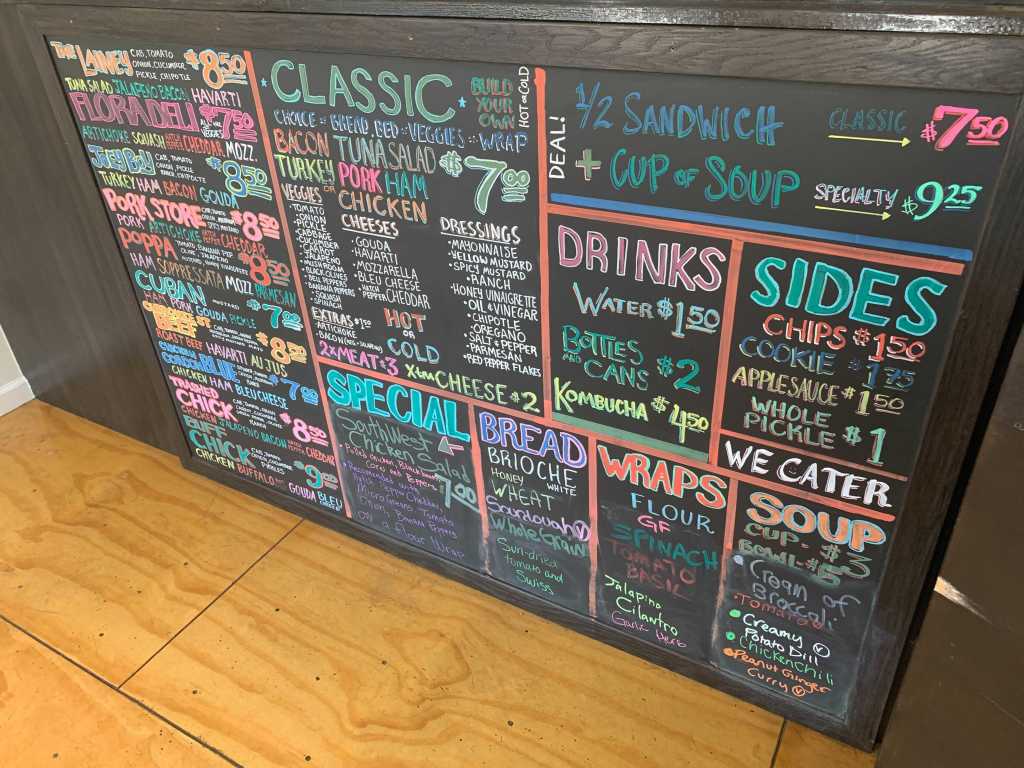 THE LAINEY CAB, TOMATO $8.50
ONION, CUCUMBER
PICKLE, CHIPOTLE
TUNA SALAD JALAPEÑO BACON HAVARTI
FLORA DELI $7.50
ARTICHOKE SQUASH CHEDDAR MOZZ.
JOEY BOY CAB, TOMATO $8.50
ONION, PICKLE
TURKEY HAM BACON GOUDA
PORK STORE $8.50
PORK ARTICHOKE CHEDDAR
POPPA $8.50
HAM SOPPRESSATA MOZZ PARMESAN
CUBAN MUSTARD $7.00
HAM PORK GOUDA PICKLE
$8.50
ROAST BEEF HAVARTI AU JUS
$7.00
CHICKEN HAM BLEU CHEESE
CHICK $8.50
CHICKEN JALAPEÑO BACON CHEDDAR
BUFF
CHICK PICKLES $9.00
CHICKEN BUFFALO GOUDA BLEU
CLASSIC
BUILD
YOUR
OWN
HOT OR COLD
CHOICE OF BREAD VEGGIES OR WRAP
BACON TUNA SALAD $7.00
TURKEY PORK HAM
OR CHICKEN
VEGGIES
• TOMATO
• ONION
• PICKLE
• CABBAGE
• CUCUMBER
• CARROT
• JALAPENO
• MUSHROOM
• BLACK OLIVES
• BELL PEPPERS
• BANANA PEPPERS
• SQUASH
• SPINACH
EXTRAS $1.50
• ARTICHOKE
• BACON (REG. + JALAPENO)
2X MEAT $3
CHEESES
• GOUDA
• HAVARTI
• MOZZARELLA
• BLEU CHEESE
• HATCH PEPPER CHEDDAR
HOT
OR
COLD
XTRA CHEESE $2
DRESSINGS
• MAYONNAISE
• YELLOW MUSTARD
• SPICY MUSTARD
• RANCH
• HONEY VINAIGRETTE
• OIL & VINEGAR
• CHIPOTLE
• OREGANO
• SALT & PEPPER
• PARMESAN
• RED PEPPER FLAKES
DEAL!
1/2 SANDWICH
+ CUP OF SOUP
CLASSIC $7.50
SPECIALTY $9.25
DRINKS
WATER $1.50
BOTTLES
AND CANS $2
KOMBUCHA $4.50
SIDES
CHIPS $1.50
COOKIE $1.75
APPLESAUCE $1.50
WHOLE
PICKLE $1
WE CATER
SPECIAL
Southwest
Chicken Salad
7.00
Pulled chicken, Black beans,
Corn and Peppers
Microgreens, Tomato
Onion, Banana Peppers
On a Flour Wrap
BREAD
BRIOCHE
HONEY WHITE
WHEAT
Sourdough Ⓥ
Whole Grain
Sun-dried
tomato and
Swiss
WRAPS
FLOUR
GF
SPINACH
TOMATO
BASIL
Jalapino
Cilantro
Garlic herb
SOUP
CUP - $3
BOWL - $5
• Cream of
Broccoli
• Tomato
• Creamy
Potato Dill Ⓥ
• Chicken Chili
• Peanut Ginger
Curry Ⓥ